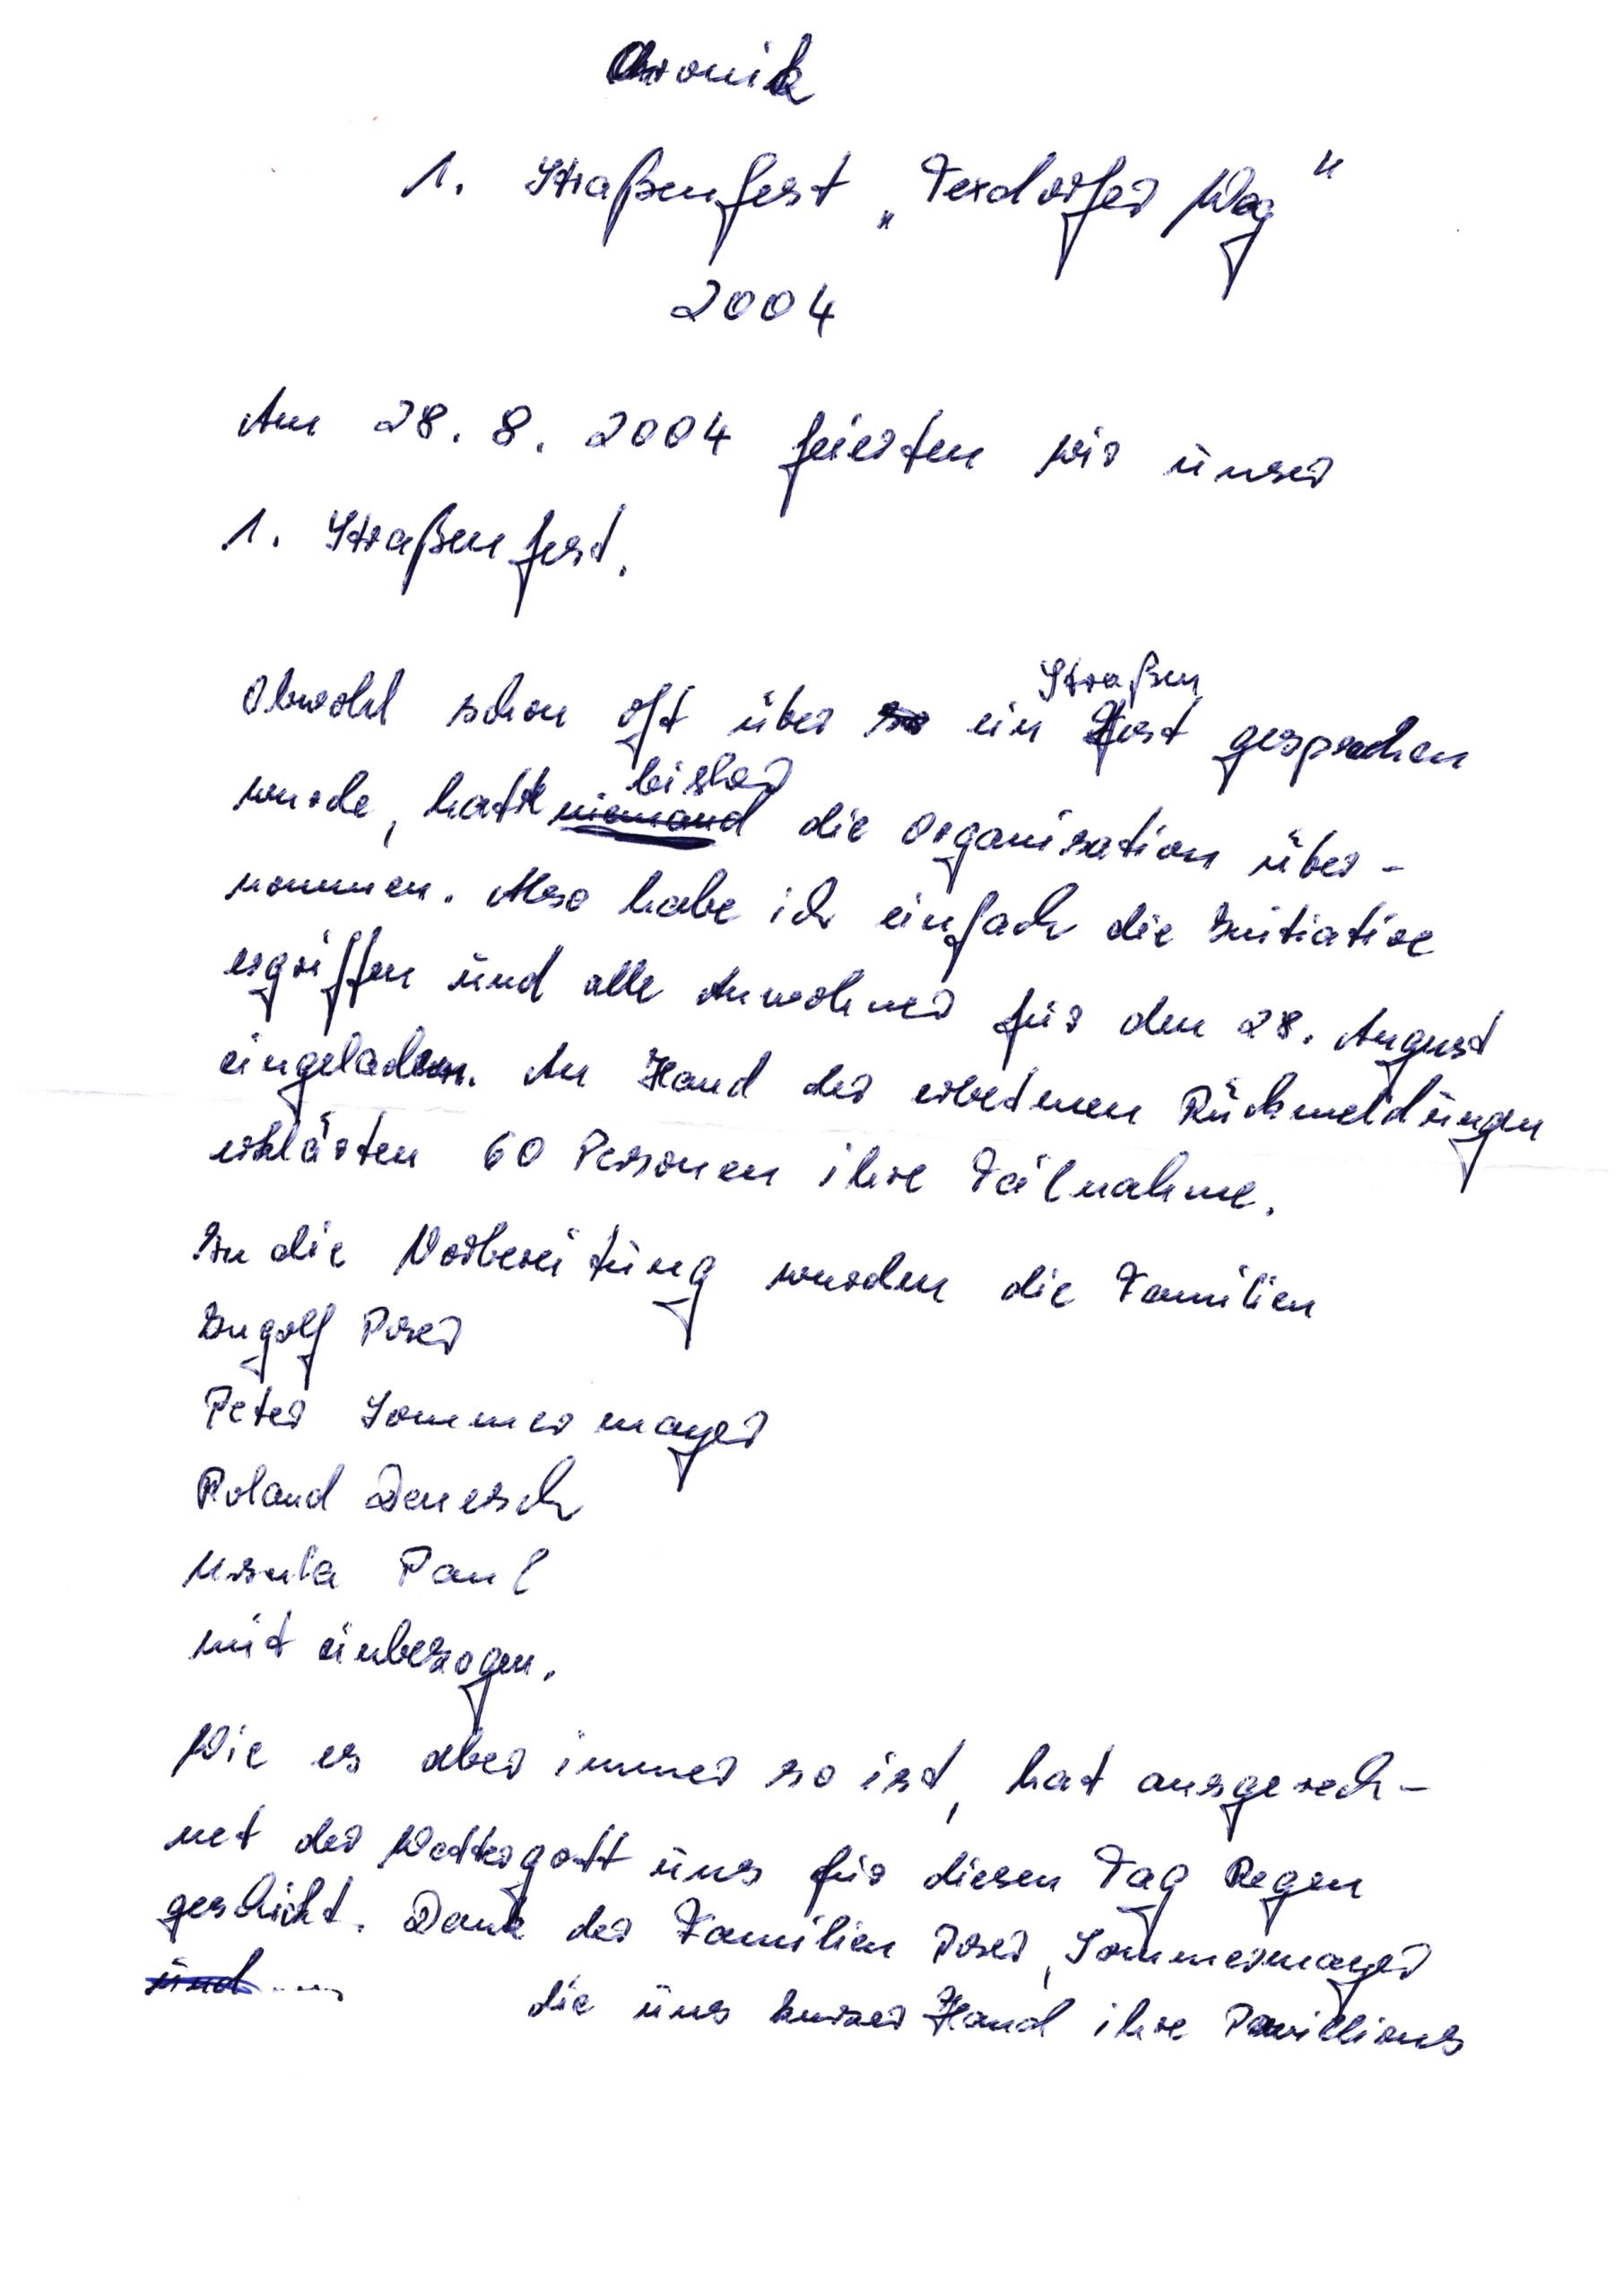 Chronik
1. Straßenfest „Texdorfer Weg"
2004
Am 28. 8. 2004 feierten wir unser
1. Straßenfest.
Obwohl schon oft über ein Straßenfest gesprochen
wurde, hatte bisher niemand die Organisation über-
nommen. Also habe ich einfach die Initiative
ergriffen und alle Anwohner für den 28. August
eingeladen. An Hand der erbetenen Rückmeldungen
erklärten 60 Personen ihre Teilnahme.
In die Vorbereitung wurden die Familien
Ingolf Poser
Peter Sommermayer
Roland Denesch
Ursula Paul
mit einbezogen.
Wie es aber immer so ist, hat ausgerech-
net der Wettergott uns für diesen Tag Regen
geschickt. Dank der Familien Poser, Sommermayer
und .... die uns kurzer Hand ihre Pavillions